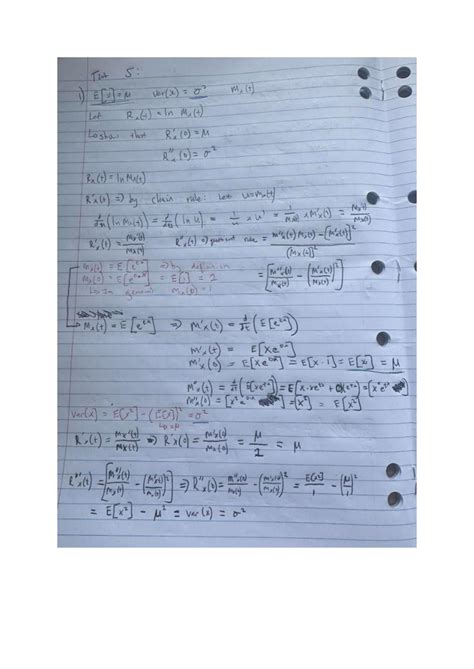 Tut 5:
1) E[x]=μ var(x) = σ² Mx(t)
Let Rx(t) = ln Mx(t)
↳ show that R'x(0) = μ
R''x(0) = σ²
Rx(t) = ln Mx(t)
R'x(t) ⇒ by chain rule: Let u=mx(t)
d/dt (ln Mx(t)) = d/dt (ln u) = 1/u × u' = 1/Mx(t) × M'x(t) = Mx'(t)/Mx(t)
R'x(t) = Mx'(t)/Mx(t) R''x(t) ⇒ quotient rule = M''x(t) Mx(t) - [M'x(t)]²/[Mx(t)]²
Mx(t) = E[e^tx] ⇒ by definition = [M''x(t)/Mx(t) - (M'x(t)/Mx(t))²]
Mx(0) = E[e^0x] = E[1] = 1
↳ In general Mx(0) = 1
Mx(t) = E[e^tx] ⇒ M'x(t) = d/dt (E[e^tx])
M'x(t) = E[Xe^tx]
M'x(0) = E[Xe^0x] = E[X·1] = E[X] = μ
M''x(t) = d/dt (E[Xe^tx])
M''x(0) = = [x²] = E[X²]
Var(x) = E[X²] - (E[X])² = σ²
↳ =μ
R'x(t) = Mx'(t)/Mx(t) ⇒ R'x(0) = M'x(0)/Mx(0) = μ/1 = μ
R''x(t) = [M''x(t)/Mx(t) - (M'x(t)/Mx(t))²] ⇒ R''x(0) = M''x(0)/Mx(0) - (M'x(0)/Mx(0))² = E[X²]/1 - (μ/1)²
= E[X²] - μ² = var(x) = σ²